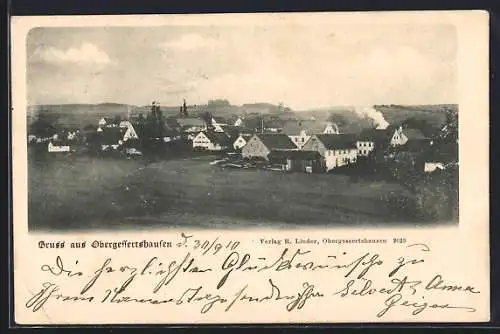 Gruss aus Obergessertshausen d. 20/9 10
Verlag R. Linder, Obergessertshausen 2029
Die herzlichsten Glückwünsche zu
Ihrem Namensfeste sendet Ihnen Anna
Geiger